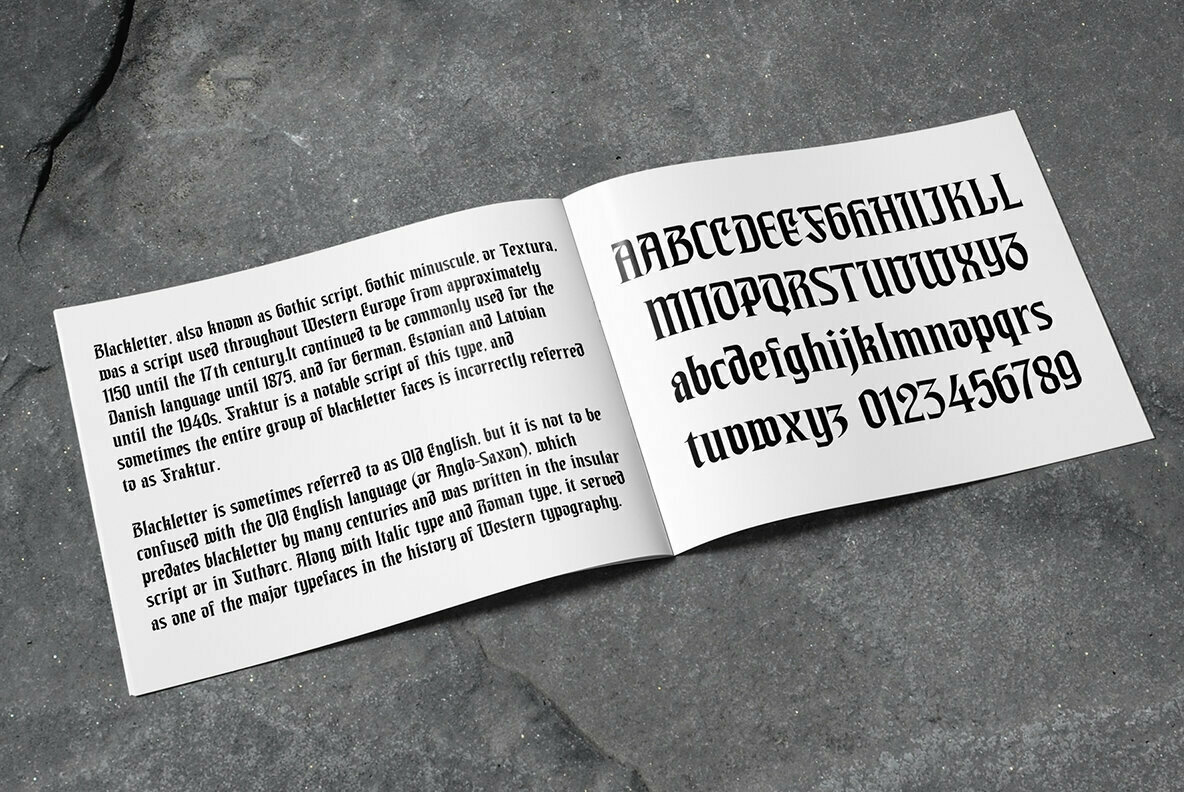 Blackletter, also known as Gothic script, Gothic minuscule, or Textura,
was a script used throughout Western Europe from approximately
1150 until the 17th century.It continued to be commonly used for the
Danish language until 1875, and for German, Estonian and Latvian
until the 1940s. Fraktur is a notable script of this type, and
sometimes the entire group of blackletter faces is incorrectly referred
to as Fraktur.
Blackletter is sometimes referred to as Old English, but it is not to be
confused with the Old English language (or Anglo-Saxon), which
predates blackletter by many centuries and was written in the insular
script or in Futhorc. Along with Italic type and Roman type, it served
as one of the major typefaces in the history of Western typography.
AABCCDEEFGHHIIJKLL
MNOPQRSTUVWXYZ
abcdefghijklmnopqrs
tuvwxyz 0123456789